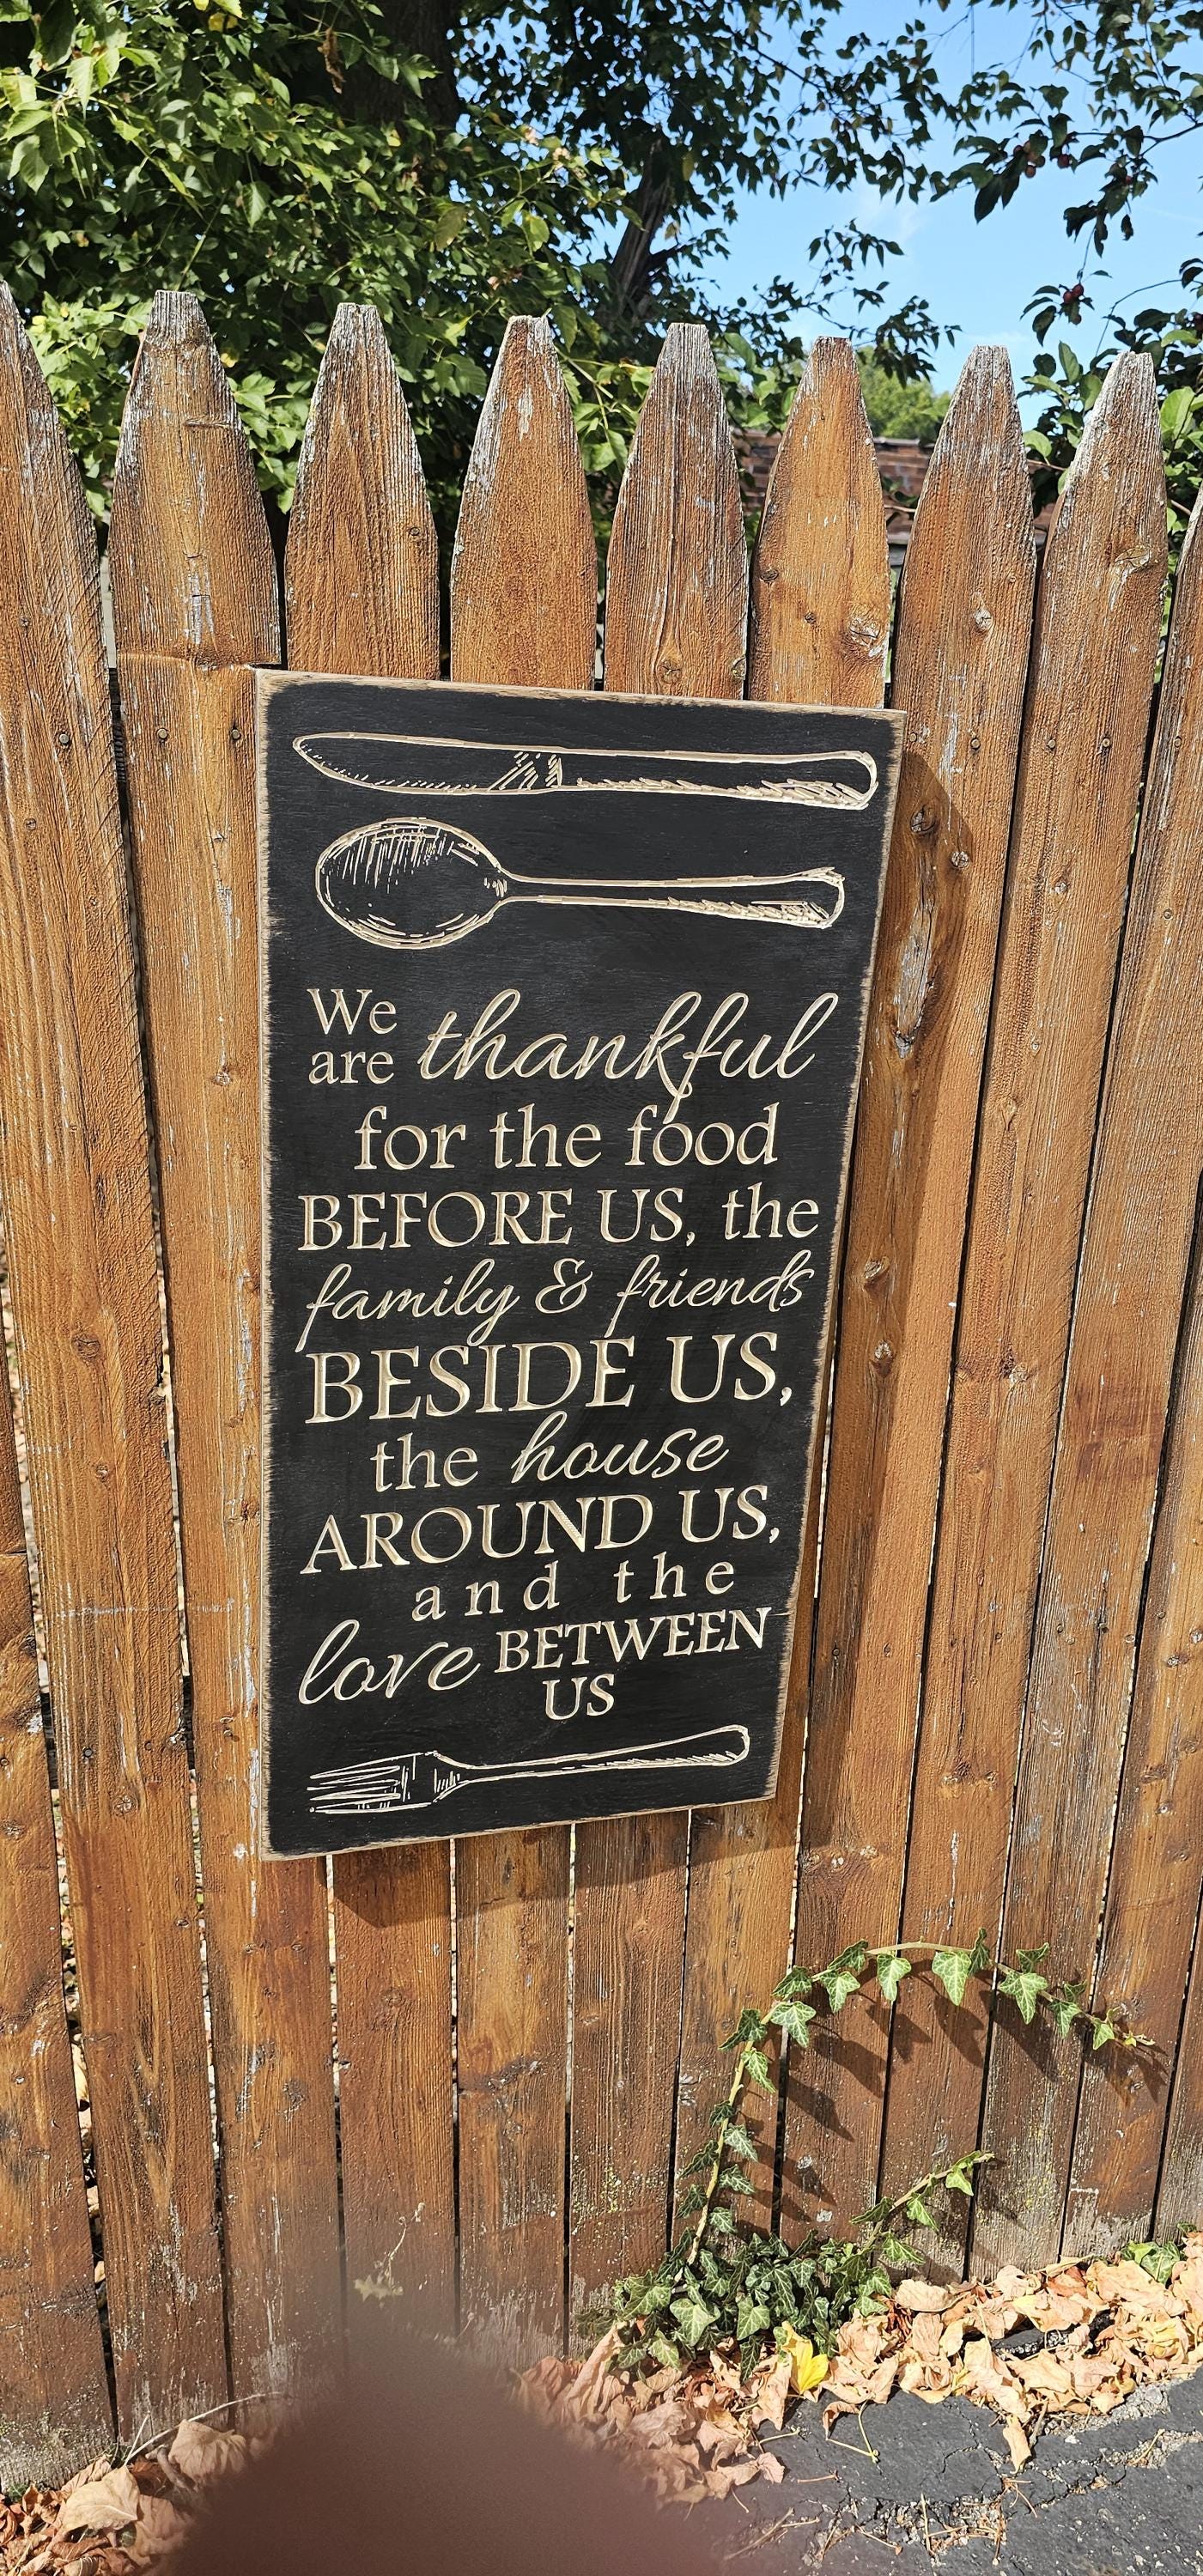 We
are thankful
for the food
BEFORE US, the
family & friends
BESIDE US,
the house
AROUND US,
and the
love BETWEEN
US